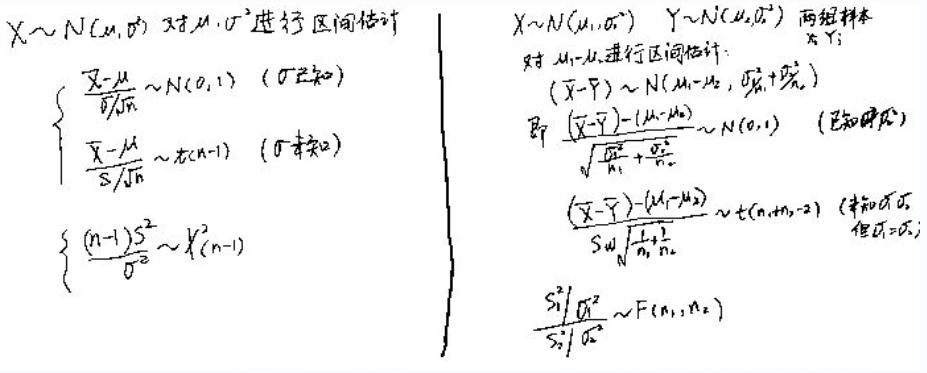 X~N(μ,σ²) 对μ,σ²进行区间估计
{ (X̄-μ)/(σ/√n) ~N(0,1) (σ已知)
(X̄-μ)/(S/√n) ~t(n-1) (σ未知)
{ (n-1)S²/σ² ~χ²(n-1)
X~N(μ₁,σ₁²) Y~N(μ₂,σ₂²) 两组样本
Xᵢ Yⱼ
对 μ₁-μ₂进行区间估计:
(X̄-Ȳ) ~ N(μ₁-μ₂, σ₁²/n₁+σ₂²/n₂)
即 ((X̄-Ȳ)-(μ₁-μ₂))/√(σ₁²/n₁+σ₂²/n₂) ~N(0,1) (已知σ₁²σ₂²)
((X̄-Ȳ)-(μ₁-μ₂))/(Sw√(1/n₁+1/n₂)) ~t(n₁+n₂-2) (未知σ₁σ₂
但σ₁=σ₂)
(S₁²/σ₁²)/(S₂²/σ₂²) ~F(n₁,n₂)